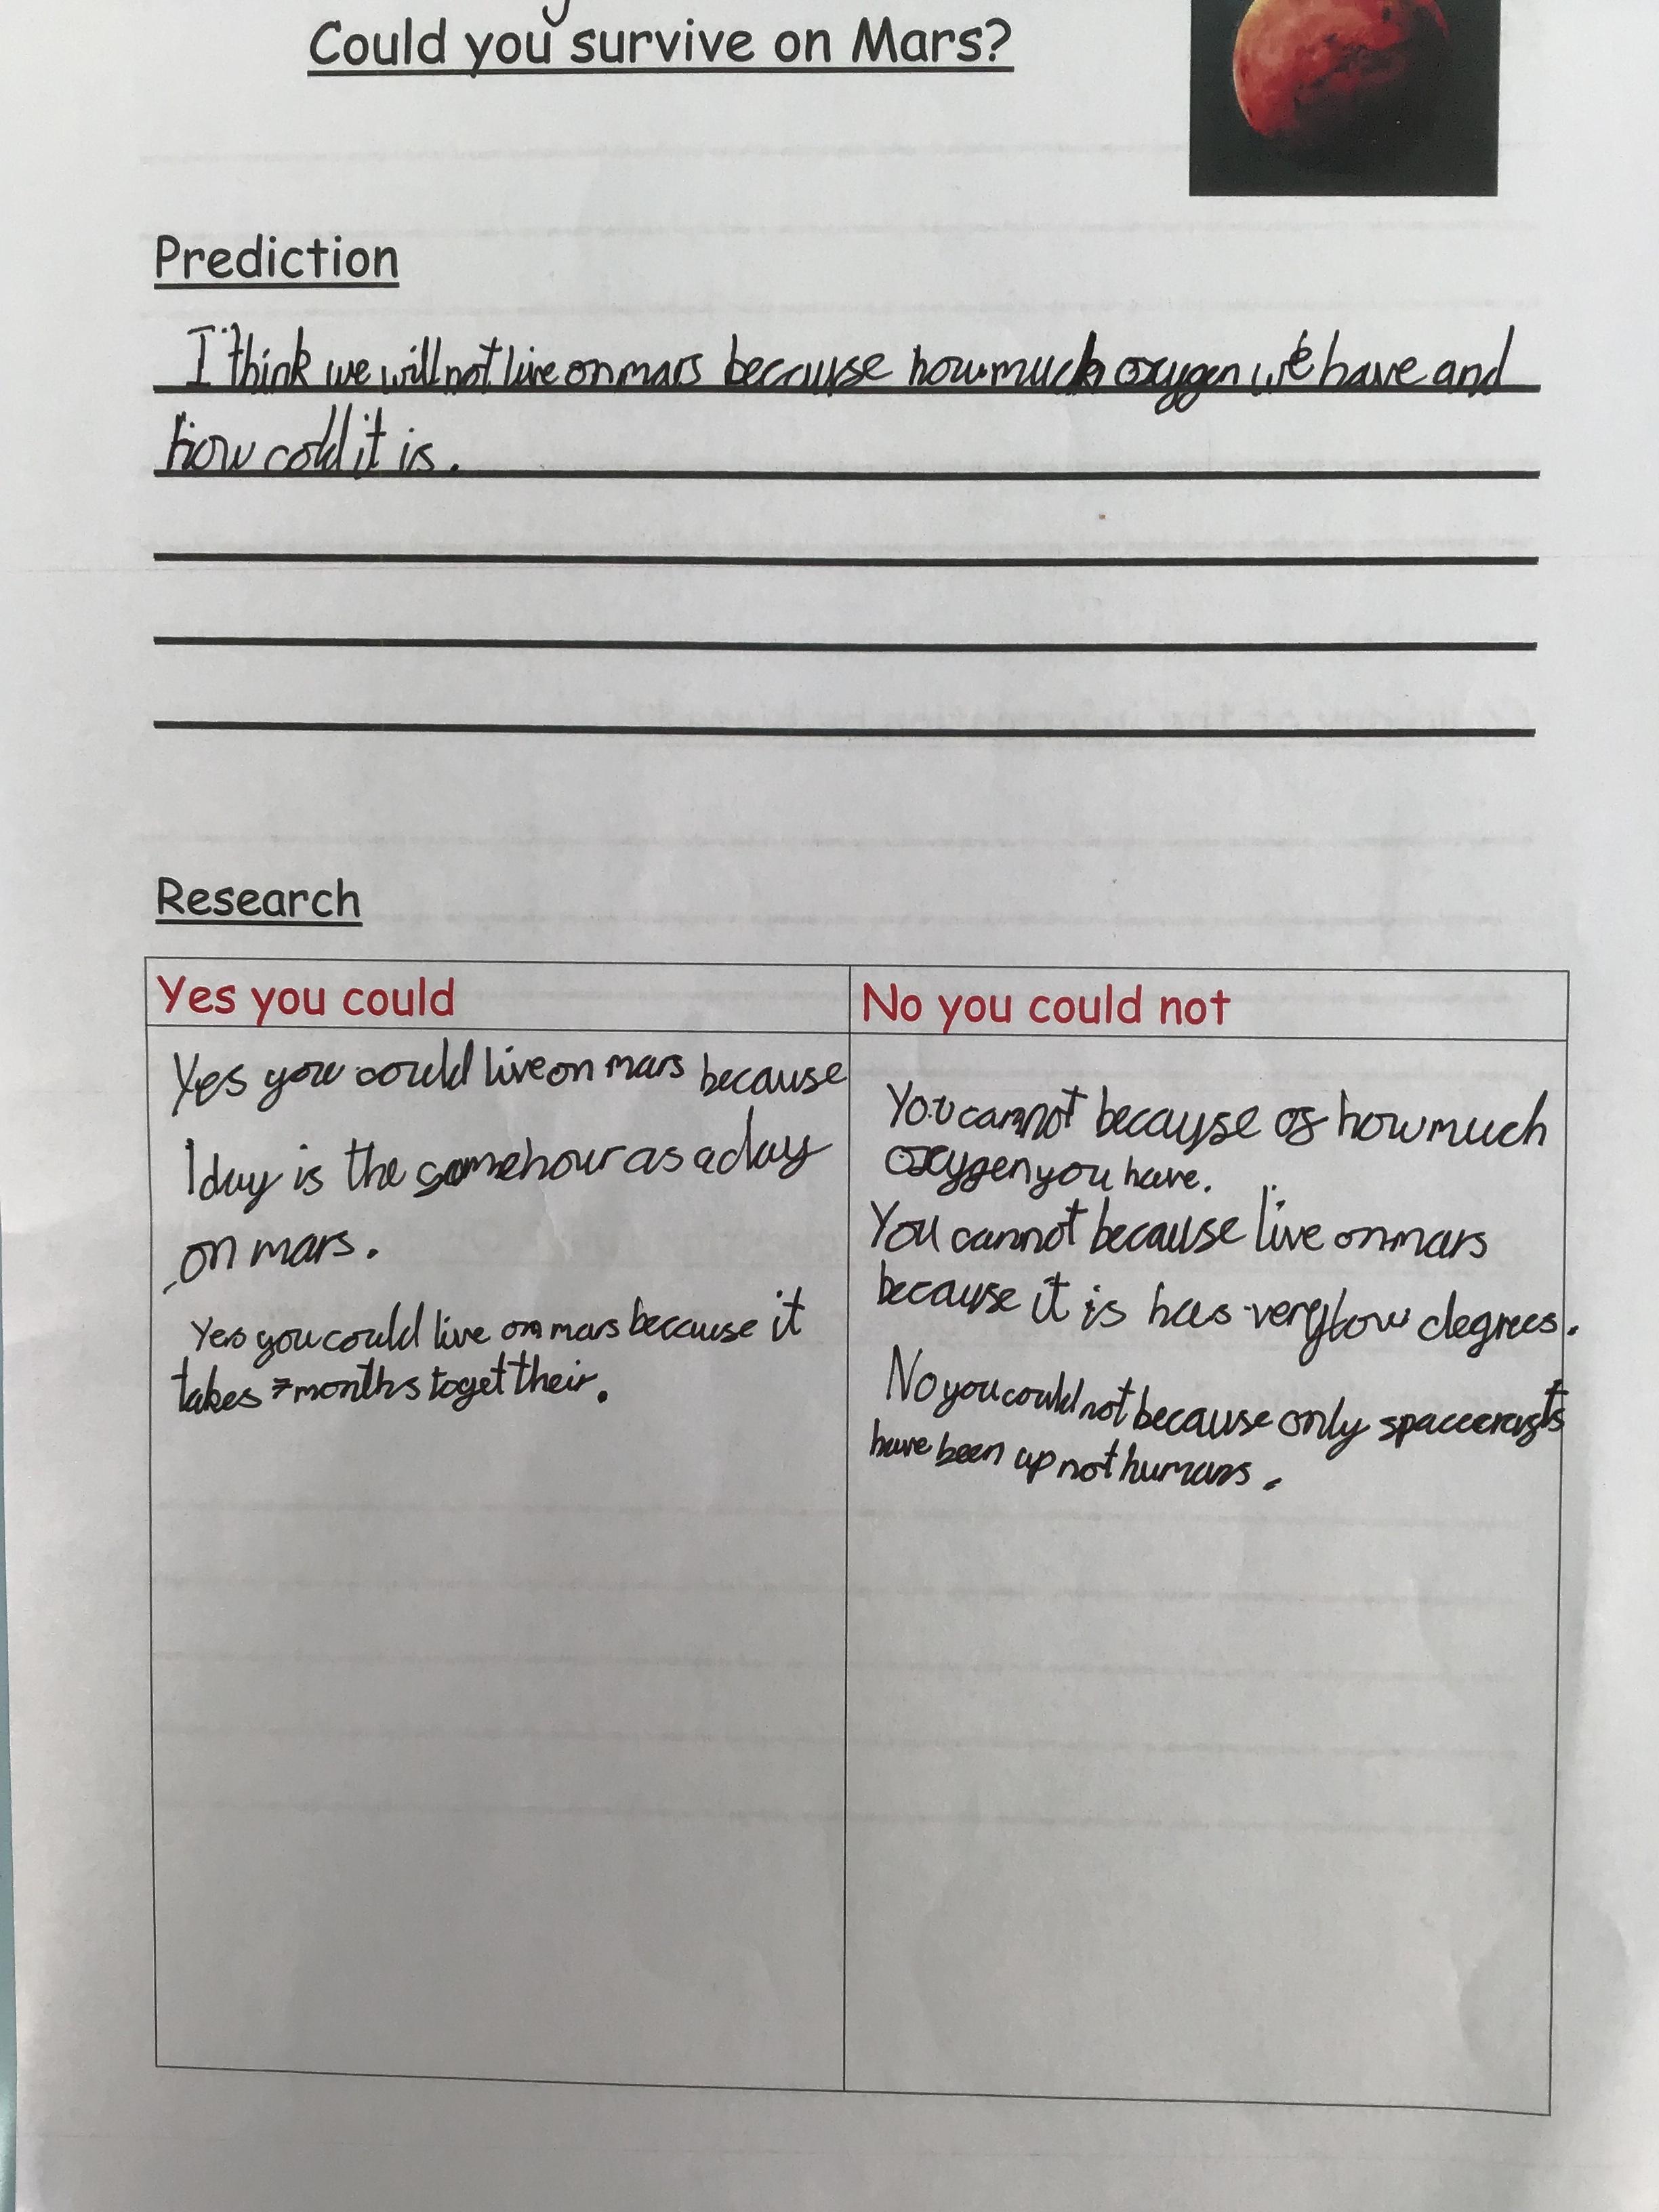 Could you survive on Mars?
Prediction
I think we will not live on mars because how much oxygen we have and
how cold it is.
Research
Yes you could
Yes you could live on mars because
1 day is the same hour as a day
on mars.
Yes you could live on mars because it
takes 7 months to get their.
No you could not
You cannot becayse of how much
oxygen you have.
You cannot because live on mars
because it is has very low degrees.
No you could not because only spacecrafts
have been up not humans.